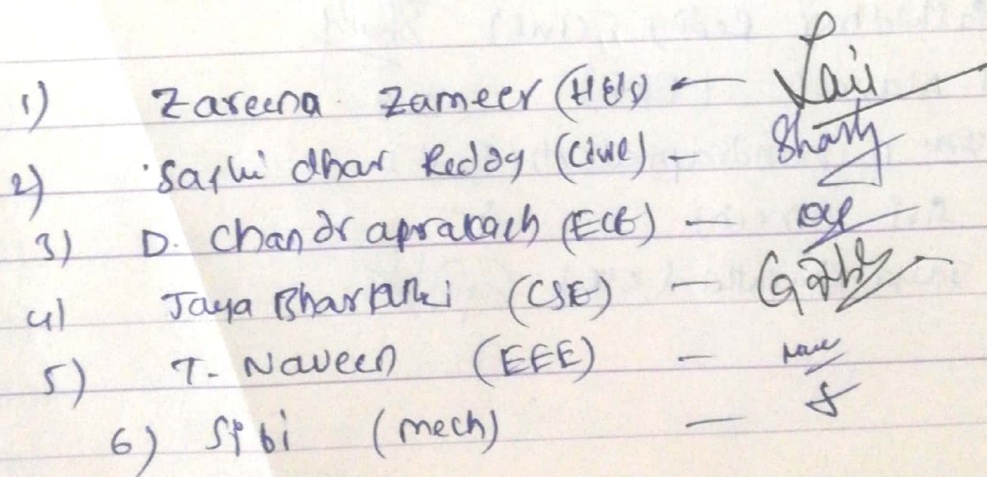 1) Zareena Zameer (H&S) -
2) Sashi dhar Reddy (Civil) - Shash
3) D. Chandraprakash (ECE) -
4) Jaya Bharathi (CSE) -
5) T. Naveen (EEE) -
6) Sibi (mech) -